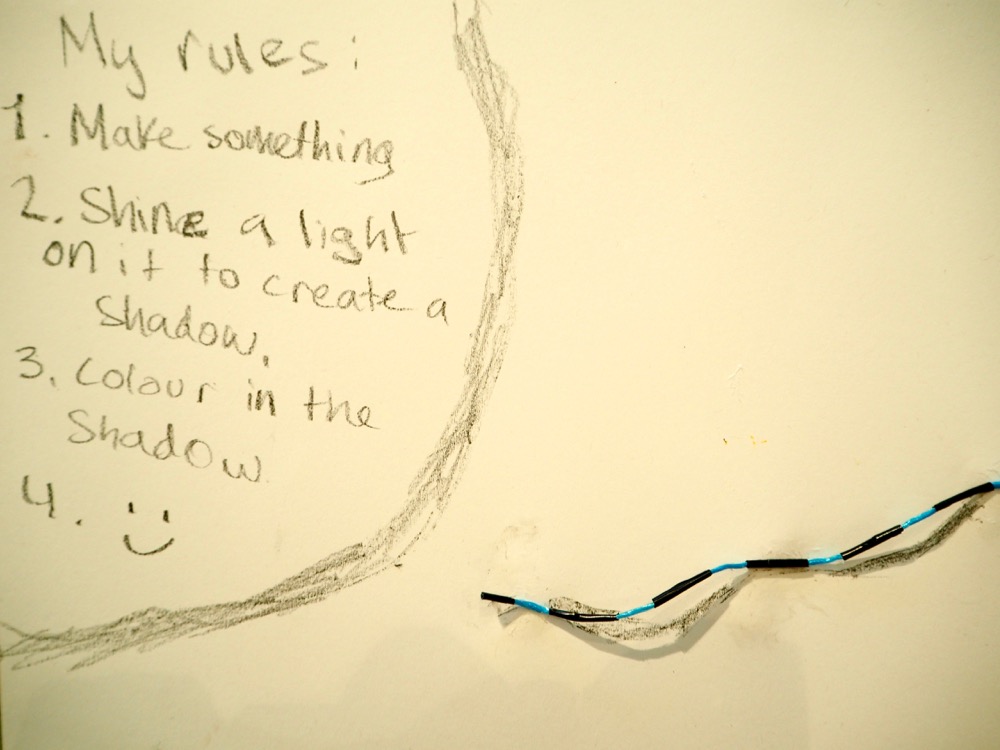 My rules:
1. Make something
2. Shine a light
on it to create a
Shadow.
3. Colour in the
Shadow
4. :)